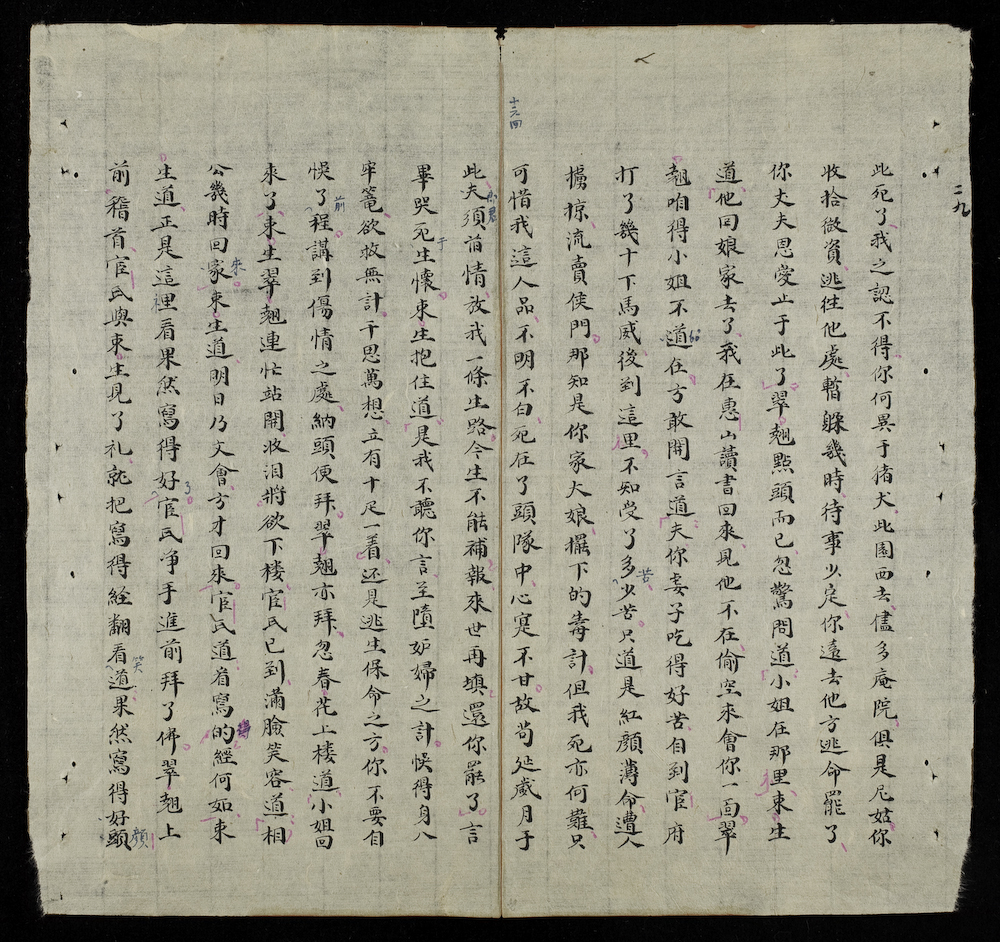 二九
此死了我之認不得你何異于猪犬此園西去儘多庵院俱是尼姑你
收拾微資逃往他處暫躲幾時待事少定你遠去他方逃命罷了
你丈夫恩愛止于此了翠翹點頭而已忽驚問道小姐在那里束生
道他回娘家去了我在惠山讀書回來見他不在偷空來會你一面翠
翹咱得小姐不道在方敢開言道夫你妻子吃得好苦自到宦府
打了幾十下馬威後到這里不知受了多少苦只道是紅顏薄命遭人
擄掠流賣侯門那知是你家大娘擺下的毒計但我死亦何難只
十六回
可惜我這人品不明不白死在了頭隊中心寔不甘故苟延歲月于
此夫須首情放我一條生路今生不能補報來世再填還你罷了言
畢哭死生懷束生抱住道是我不聽你言至墮妒婦之計悞得身入
牢篭欲救無計千思萬想立有十尺一着还是逃生保命之方你不要自
悞了程講到傷情之處納頭便拜翠翹亦拜忽春花上楼道小姐回
來了束生翠翹連忙站開收泪將欲下楼宦氏已到滿臉笑容道相
公幾時回家束生道明日乃文會方才回來宦氏道看寫的經何如束
生道正是這裡看果然寫得好宦氏净手進前拜了佛翠翹上
前稽首宦氏與束生見了礼就把寫得経翻看道果然寫得好頭